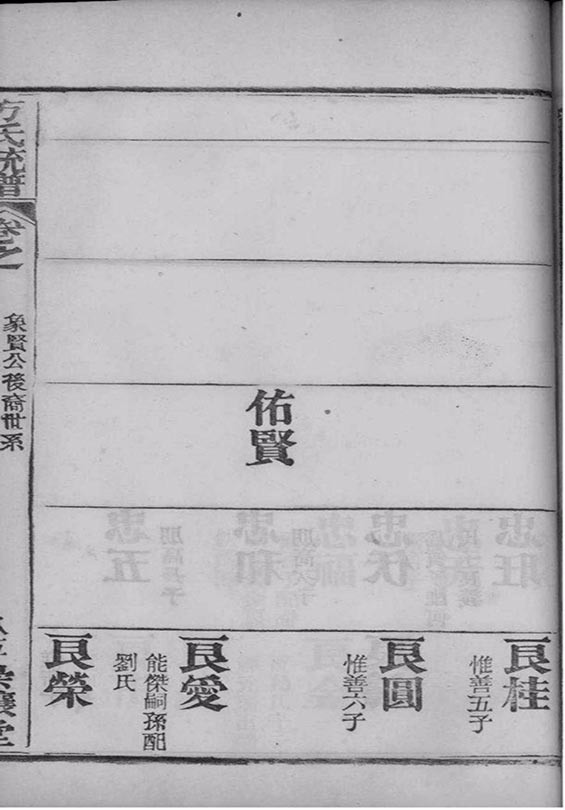 良桂
惟善五子
良圓
惟善六子
良愛
能傑嗣孫配
劉氏
佑賢
良榮
方氏統譜
卷之
象賢公後裔世系